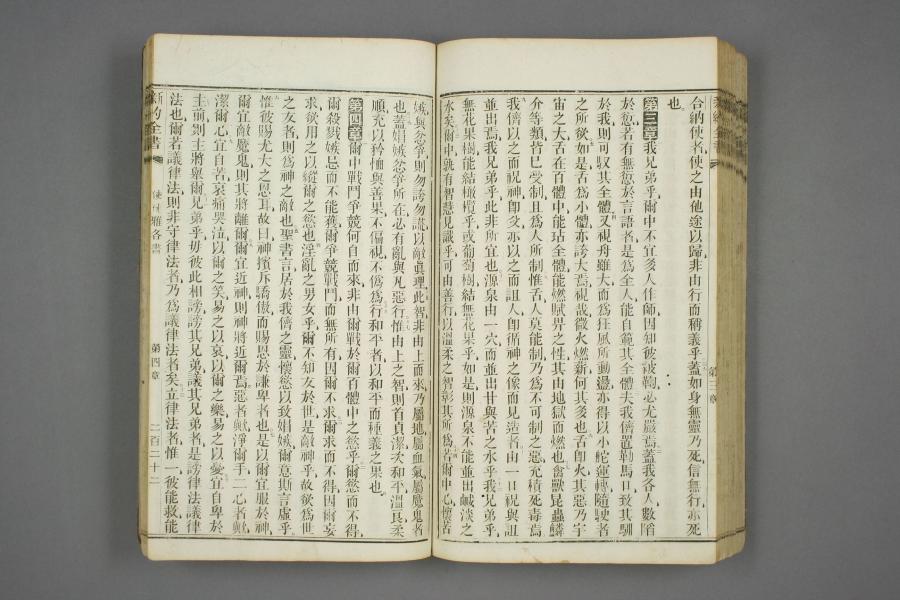 新約全書
第三章
合納使者使之由他途以歸非由行而稱義乎蓋如身無靈乃死信無行亦死
也
第三章我兄弟乎爾中不宜多人作師因知彼被鞫必尤嚴焉蓋我各人數陷
於愆若有無愆於言語者是爲全人能自範其全體夫我儕置勒馬口致其馴
於我則可馭其全體又視舟雖大而爲狂風所動盪亦得以小舵運轉隨駛者
之所欲如是舌爲小體亦誇大焉視哉微火燃薪何其多也舌卽火其惡乃宇
宙之大舌在百體中能玷全體能燃賦畀之性其由地獄而燃也禽獸昆蟲鱗
介等類皆已受制且爲人所制惟舌人莫能制乃爲不可制之惡充積死毒焉
我儕以之而祝神卽父亦以之而詛人卽循神之像而見造者由一口祝與詛
並出焉我兄弟乎此非所宜也源泉由一穴而並出甘與苦之水乎我兄弟乎
無花果樹能結橄欖乎或葡萄樹結無花果乎如是則源泉不能並出鹹淡之
水矣爾中孰有智慧見識乎可由善行以溫柔之智彰其所爲若爾中心懷苦
嫉與忿爭則勿誇勿謊以敵眞理此智非由上而來乃屬地屬血氣屬魔鬼者
也蓋娼嫉忿爭所在必有亂與凡惡行惟由上之智則首貞潔次和平溫良柔
順充以矜恤與善果不偏視不僞爲行和平者以和平而種義之果也
第四章爾中戰鬥爭競何自而來非由爾戰於爾百體中之慾乎爾慾而不得
爾殺戮嫉忌而不能獲爾爭競戰鬥而無所有因爾不求爾求而不得因爾妄
求欲用之以縱爾之慾也淫亂之男女乎爾不知友於世是敵神乎故欲爲世
之友者則爲神之敵也聖書言居於我儕之靈懷慾以致娼嫉爾意斯言虛乎
惟彼賜尤大之恩耳故曰神擯斥驕傲而賜恩於謙卑者也是以爾宜服於神
爾宜敵魔鬼則其將離爾爾宜近神則神將近爾焉惡者歟淨爾手二心者歟
潔爾心宜自苦哀痛哭泣以爾之笑易之以哀以爾之樂易之以憂宜自卑於
主前則主將舉爾兄弟乎毋彼此相謗謗其兄弟議其兄弟者是謗律法議律
法也爾若議律法則非守律法者乃爲議律法者矣立律法者惟一彼能救能
新約全書
使付雅各書
第四章
二百二十二